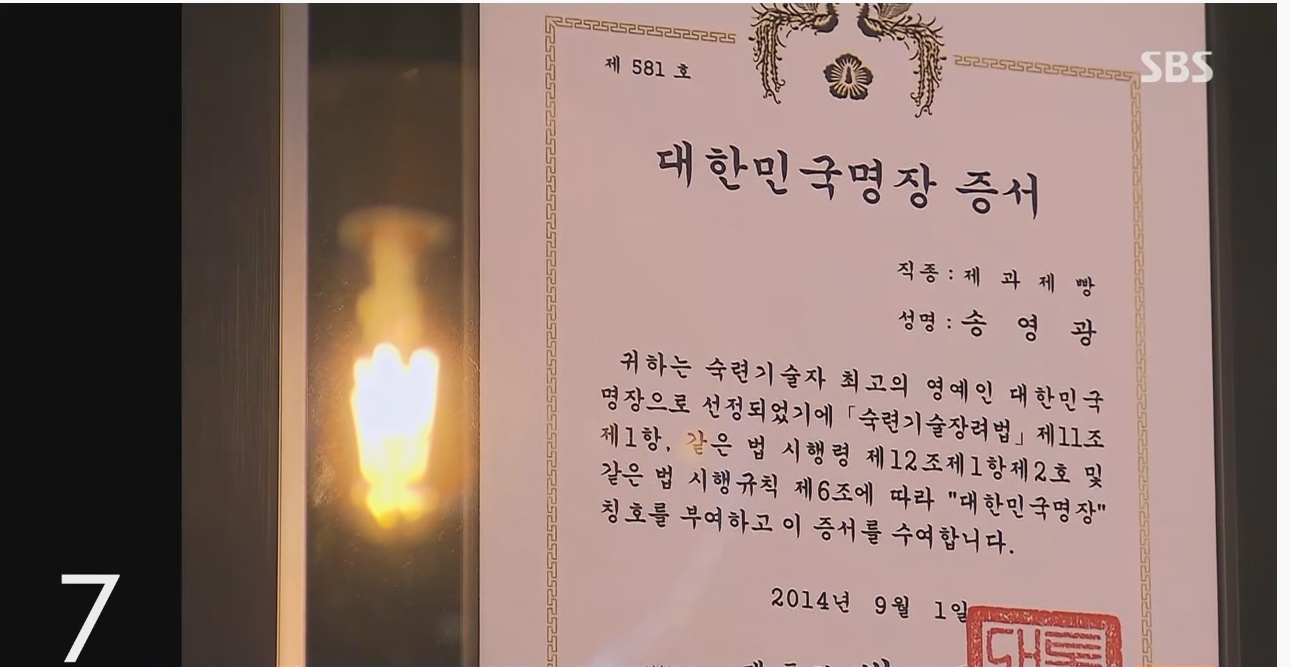 SBS
제 581 호
대한민국명장 증서
직종 : 제 과 제 빵
성명 : 송 영 광
귀하는 숙련기술자 최고의 영예인 대한민국
명장으로 선정되었기에 「숙련기술장려법」 제11조
제1항, 같은 법 시행령 제12조제1항제2호 및
같은 법 시행규칙 제6조에 따라 "대한민국명장"
칭호를 부여하고 이 증서를 수여합니다.
2014년 9월 1일
7